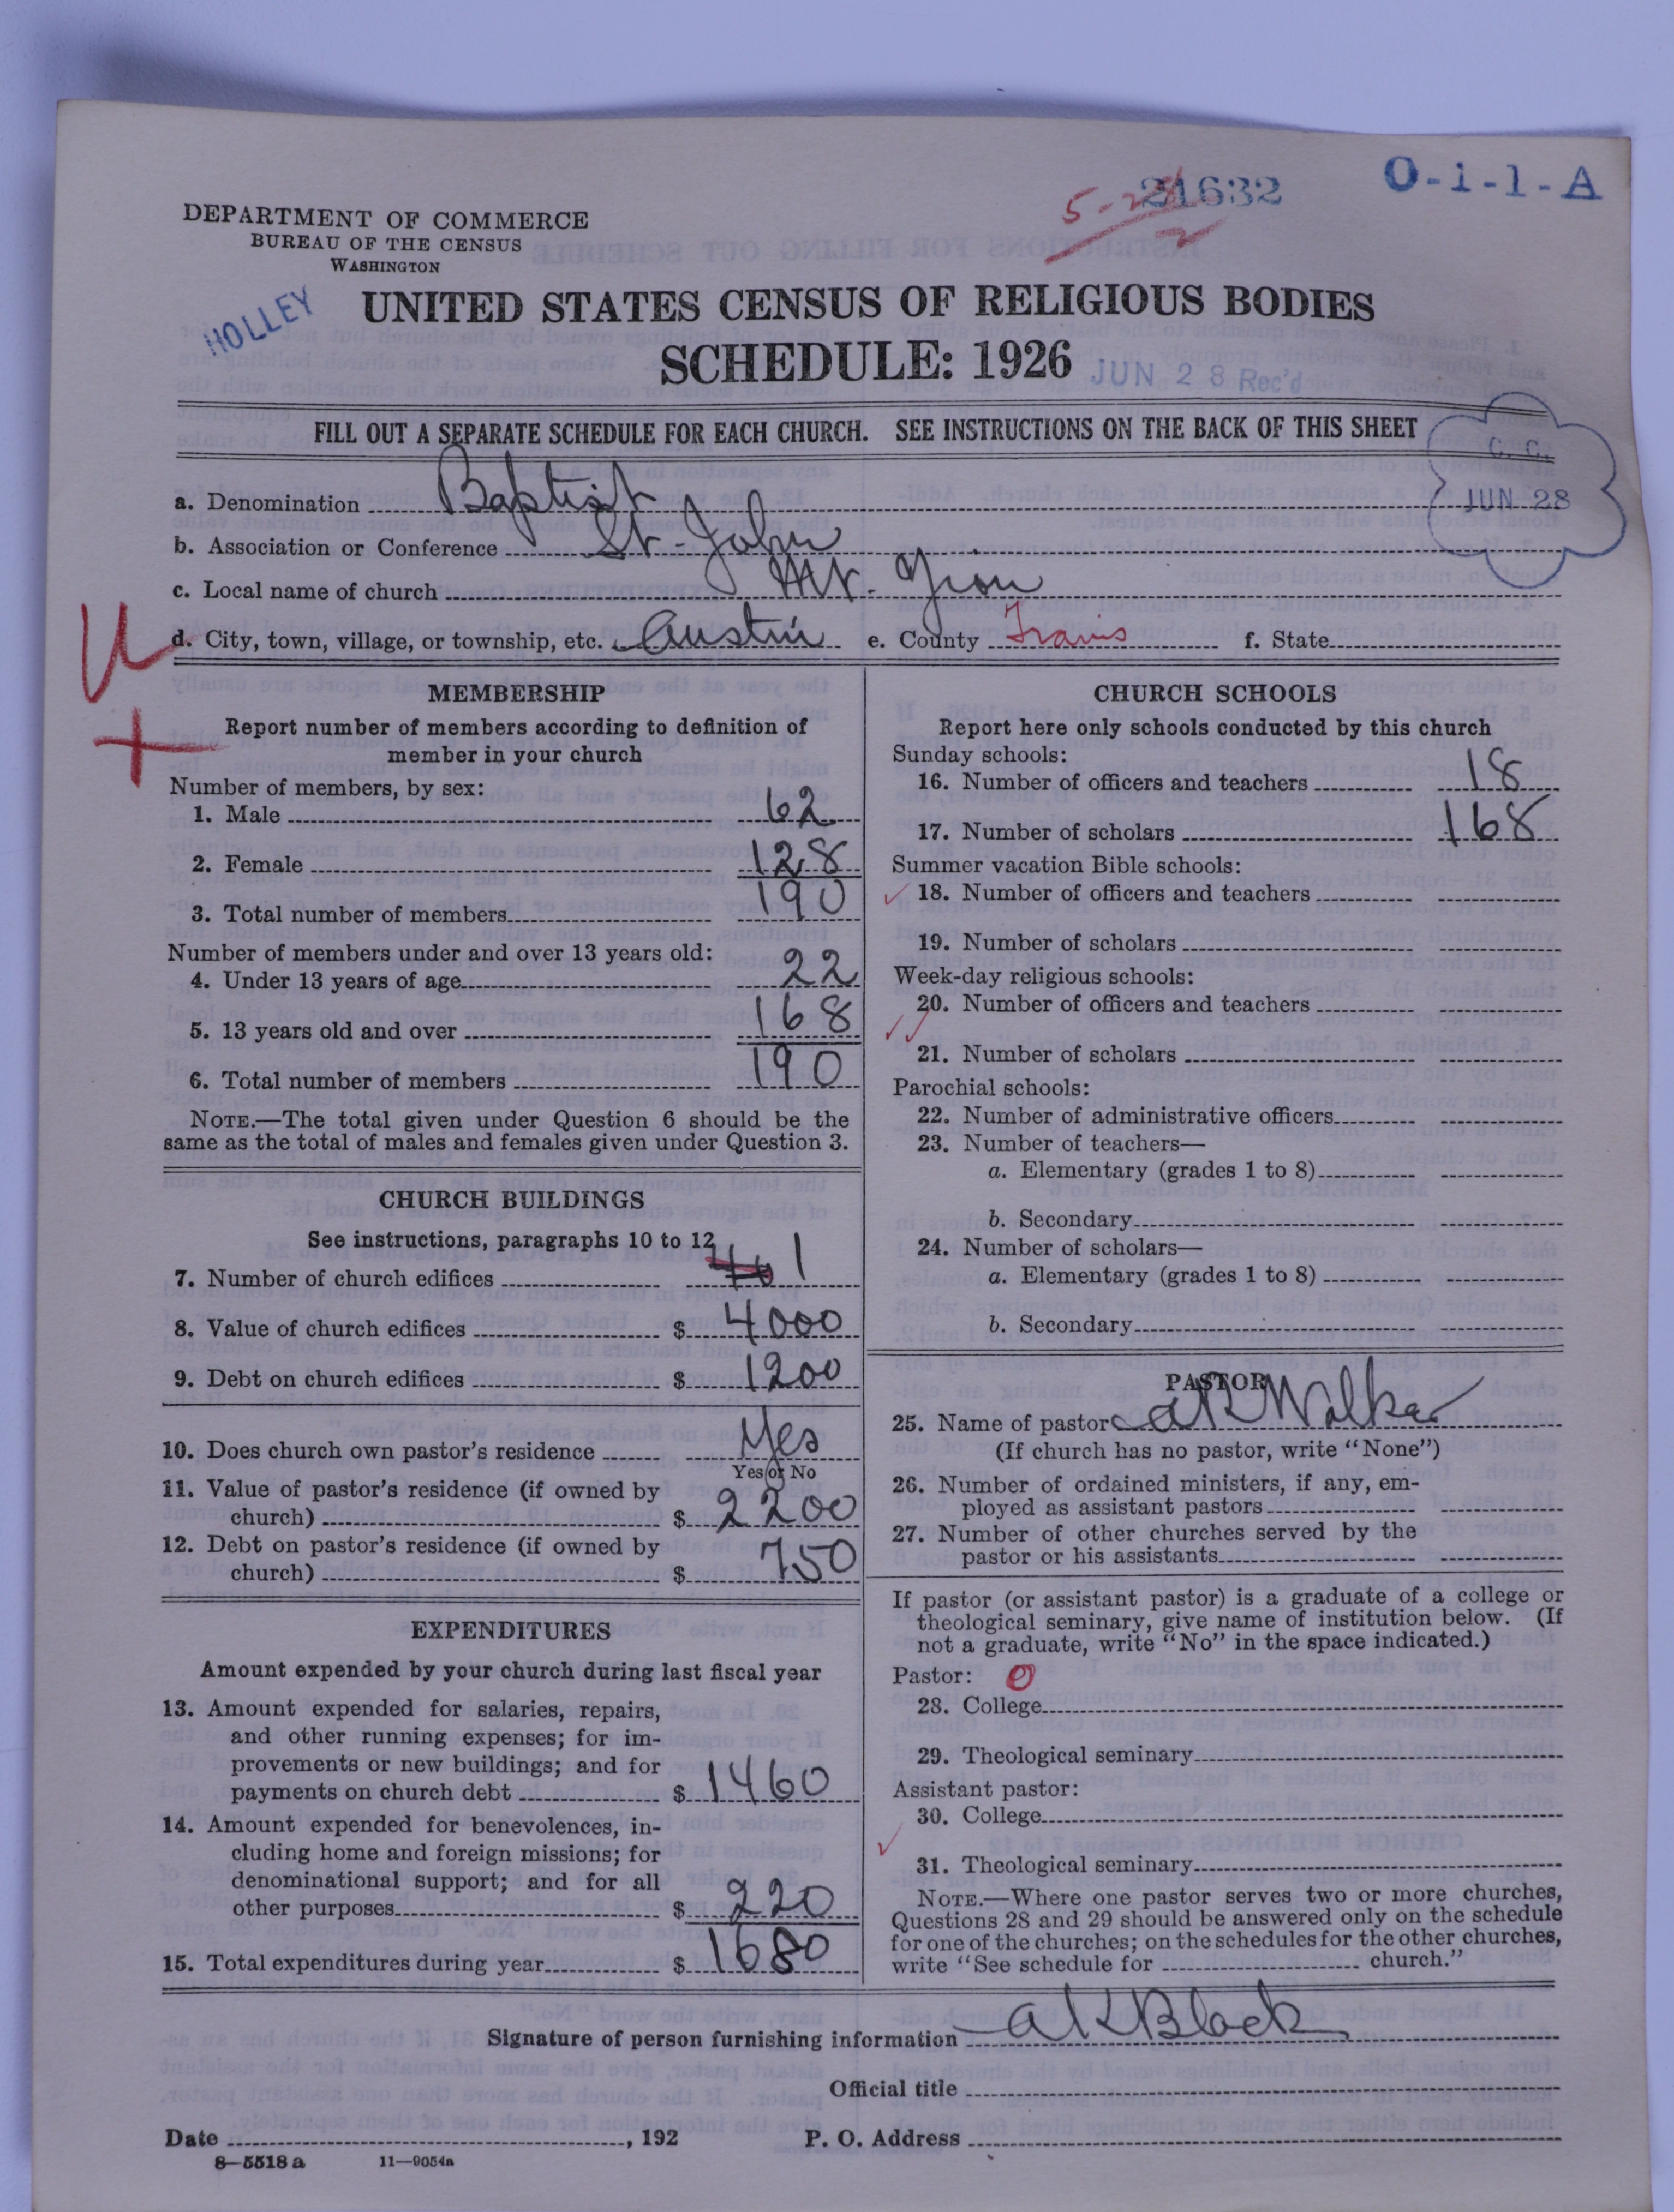 21632
O-i-1-A
DEPARTMENT OF COMMERCE
BUREAU OF THE CENSUS
WASHINGTON
HOLLEY
UNITED STATES CENSUS OF RELIGIOUS BODIES
SCHEDULE: 1926
JUN 28 Rec'd
FILL OUT A SEPARATE SCHEDULE FOR EACH CHURCH. SEE INSTRUCTIONS ON THE BACK OF THIS SHEET
C. C.
JUN 28
a. Denomination Baptist
b. Association or Conference St. John
c. Local name of church Mt. Zion
d. City, town, village, or township, etc. Austin e. County Travis f. State
MEMBERSHIP
Report number of members according to definition of
member in your church
Number of members, by sex:
1. Male 62
2. Female 128
3. Total number of members 190
Number of members under and over 13 years old:
4. Under 13 years of age 22
5. 13 years old and over 168
6. Total number of members 190
NOTE.—The total given under Question 6 should be the
same as the total of males and females given under Question 3.
CHURCH BUILDINGS
See instructions, paragraphs 10 to 12
7. Number of church edifices 1
8. Value of church edifices $ 4000
9. Debt on church edifices $ 1200
10. Does church own pastor's residence Yes
Yes or No
11. Value of pastor's residence (if owned by
church) $ 2200
12. Debt on pastor's residence (if owned by
church) $ 750
EXPENDITURES
Amount expended by your church during last fiscal year
13. Amount expended for salaries, repairs,
and other running expenses; for im-
provements or new buildings; and for
payments on church debt $ 1460
14. Amount expended for benevolences, in-
cluding home and foreign missions; for
denominational support; and for all
other purposes $ 220
15. Total expenditures during year $ 1680
CHURCH SCHOOLS
Report here only schools conducted by this church
Sunday schools:
16. Number of officers and teachers 18
17. Number of scholars 168
Summer vacation Bible schools:
18. Number of officers and teachers
19. Number of scholars
Week-day religious schools:
20. Number of officers and teachers
21. Number of scholars
Parochial schools:
22. Number of administrative officers
23. Number of teachers—
a. Elementary (grades 1 to 8)
b. Secondary
24. Number of scholars—
a. Elementary (grades 1 to 8)
b. Secondary
PASTOR
25. Name of pastor Walker
(If church has no pastor, write "None")
26. Number of ordained ministers, if any, em-
ployed as assistant pastors
27. Number of other churches served by the
pastor or his assistants
If pastor (or assistant pastor) is a graduate of a college or
theological seminary, give name of institution below. (If
not a graduate, write "No" in the space indicated.)
Pastor: 0
28. College
29. Theological seminary
Assistant pastor:
30. College
31. Theological seminary
NOTE.—Where one pastor serves two or more churches,
Questions 28 and 29 should be answered only on the schedule
for one of the churches; on the schedules for the other churches,
write "See schedule for church."
Signature of person furnishing information a K Black
Official title
Date , 192 P. O. Address
8—5518 a 11—9054a